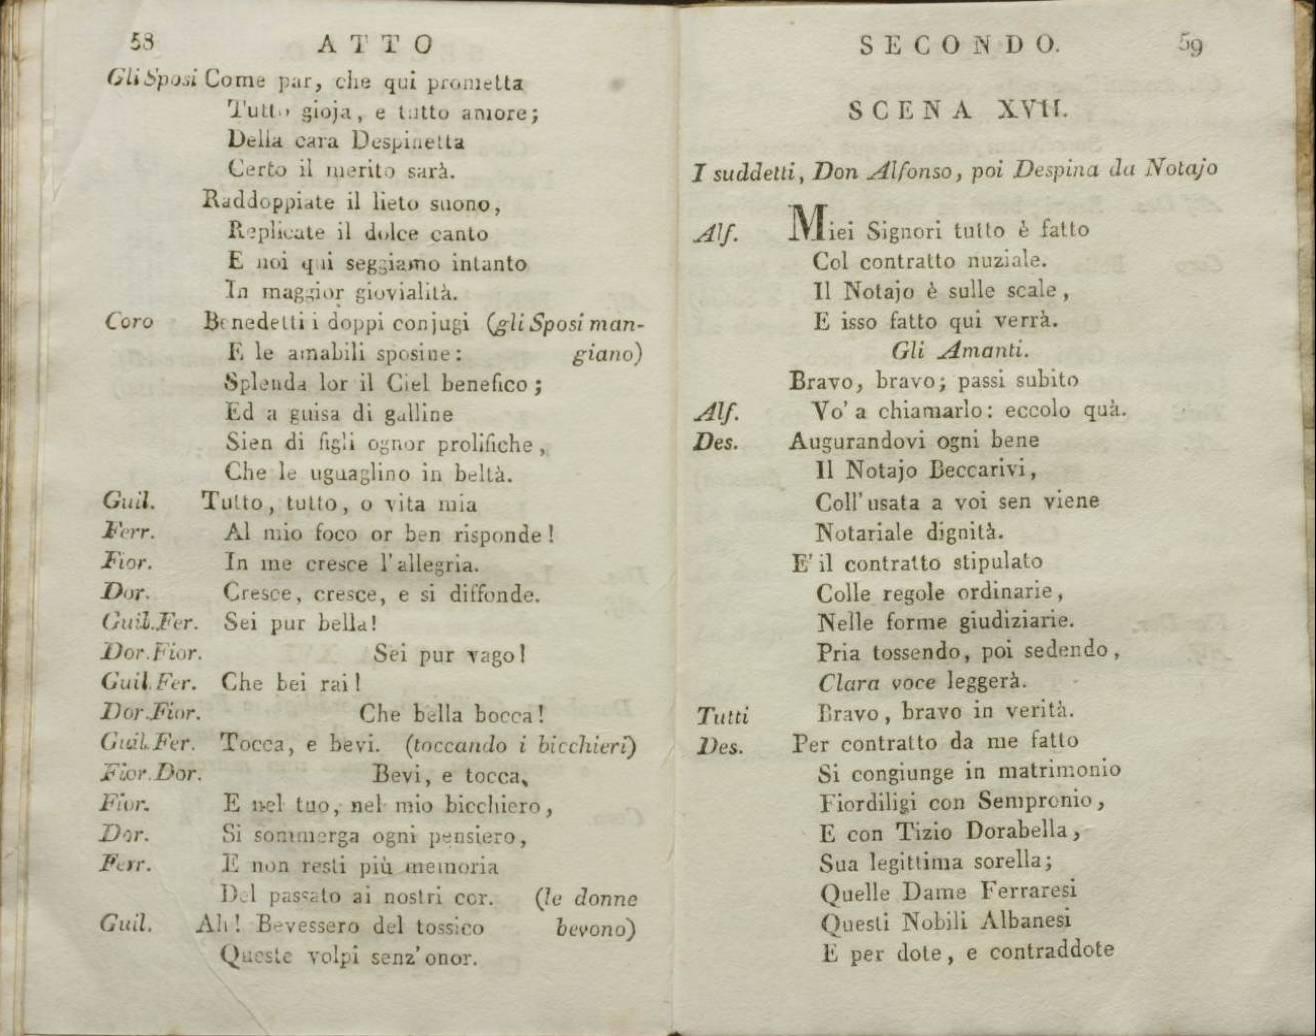 58 ATTO
Gli Sposi Come par, che qui prometta
Tutto gioja, e tutto amore;
Della cara Despinetta
Certo il merito sarà.
Raddoppiate il lieto suono,
Replicate il dolce canto
E noi qui seggiamo intanto
In maggior giovialità.
Coro Benedetti i doppi conjugi (gli Sposi man-
E le amabili sposine: giano)
Splenda lor il Ciel benefico;
Ed a guisa di galline
Sien di figli ognor prolifiche,
Che le uguaglino in beltà.
Guil. Tutto, tutto, o vita mia
Ferr. Al mio foco or ben risponde!
Fior. In me cresce l'allegria.
Dor. Cresce, cresce, e si diffonde.
Guil.Fer. Sei pur bella!
Dor.Fior. Sei pur vago!
Guil.Fer. Che bei rai!
Dor.Fior. Che bella bocca!
Guil.Fer. Tocca, e bevi. (toccando i bicchieri)
Fior.Dor. Bevi, e tocca,
Fior. E nel tuo, nel mio bicchiero,
Dor. Si sommerga ogni pensiero,
Ferr. E non resti più memoria
Del passato ai nostri cor. (le donne
Guil. Ah! Bevessero del tossico bevono)
Queste volpi senz'onor.
SECONDO. 59
SCENA XVII.
I suddetti, Don Alfonso, poi Despina da Notajo
Alf. Miei Signori tutto è fatto
Col contratto nuziale.
Il Notajo è sulle scale,
E isso fatto qui verrà.
Gli Amanti.
Bravo, bravo; passi subito
Alf. Vo' a chiamarlo: eccolo quà.
Des. Augurandovi ogni bene
Il Notajo Beccarivi,
Coll'usata a voi sen viene
Notariale dignità.
E' il contratto stipulato
Colle regole ordinarie,
Nelle forme giudiziarie.
Pria tossendo, poi sedendo,
Clara voce leggerà.
Tutti Bravo, bravo in verità.
Des. Per contratto da me fatto
Si congiunge in matrimonio
Fiordiligi con Sempronio,
E con Tizio Dorabella,
Sua legittima sorella;
Quelle Dame Ferraresi
Questi Nobili Albanesi
E per dote, e contraddote